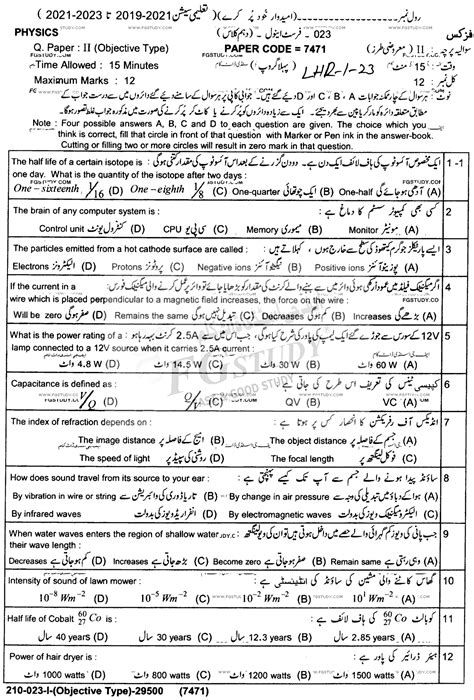 (تعلیمی سیشن 2021-2019 تا 2023-2021) (امیدوار خود پُر کرے) رول نمبر
PHYSICS 023 - فرسٹ اینول - (دہم کلاس) فزکس
Q. Paper : II (Objective Type) PAPER CODE = 7471 سوالیہ پرچہ : II (معروضی طرز)
Time Allowed : 15 Minutes (پہلا گروپ) LHR-1-23 وقت : 15 منٹ
Maximum Marks : 12 کل نمبر : 12
Note : Four possible answers A, B, C and D to each question are given. The choice which you
think is correct, fill that circle in front of that question with Marker or Pen ink in the answer-book.
Cutting or filling two or more circles will result in zero mark in that question.
The half life of a certain isotope is ایک مخصوص آئسوٹوپ کی ہاف لائف ایک دن ہے۔ دو دن گزرنے کے بعد اس آئسوٹوپ کی مقدار کتنی ہوگی : 1 -1
one day. What is the quantity of the isotope after two days :
One – sixteenth 1/16 (D) One – eighth 1/8 (C) One-quarter ایک چوتھائی (B) One-half آدھی ہو جائے گی (A)
The brain of any computer system is : کسی بھی کمپیوٹر سسٹم کا دماغ ہے : 2
Control unit کنٹرول یونٹ (D) CPU سی پی یو (C) Memory میموری (B) Monitor مونیٹر (A)
The particles emitted from a hot cathode surface are called : ایسے پارٹیکلز جو گرم کیتھوڈ کی سطح سے خارج ہوں ، کہلاتے ہیں : 3
Electrons الیکٹرونز (D) Protons پروٹونز (C) Negative ions نیگیٹو آئنز (B) Positive ions پوزیٹو آئنز (A)
If the current in 4
wire which is placed perpendicular to a magnetic field increases, the force on the wire :
Will be zero صفر ہوگی (D) Remains the same تبدیل نہیں ہوگی (C) Decreases کم ہوگی (B) Increases بڑھے گی (A)
What is the power rating of a 12V کے سورس سے جوڑے گئے ایک لیمپ کی پاور کی شرح کیا ہوگی ، جب اس میں سے 2.5A کرنٹ بہہ رہا ہو : 5
lamp connected to a 12V source when it carries 2.5A current :
4.8 W واٹ (D) 14.5 W واٹ (C) 30 W واٹ (B) 60 W واٹ (A)
Capacitance is defined as : کپیسی ٹینس کی تعریف اس طرح کی جاتی ہے : 6
V/Q (D) Q/V (C) QV (B) VC (A)
The index of refraction depends on : انڈیکس آف رفریکشن کا انحصار کس پر ہوتا ہے : 7
The image distance امیج کے فاصلہ پر (B) The object distance جسم کے فاصلہ پر (A)
The speed of light روشنی کی سپیڈ پر (D) The focal length فوکل لینگتھ پر (C)
How does sound travel from its source to your ear : ساؤنڈ پیدا ہونے والے جسم سے آپ تک کیسے پہنچتی ہے : 8
By vibration in wire or string تار یا ڈوری کی وائبریشن سے (B) By change in air pressure ہوا کے دباؤ میں تبدیلی کی وجہ سے (A)
By infrared waves انفراریڈ ویوز کی بدولت (D) By electromagnetic waves الیکٹرومیگنیٹک ویوز کی بدولت (C)
When water waves enters the region of shallow water جب پانی کی ویوز کم گہرائی والے حصے میں داخل ہوتی ہیں تو ان کی ویولینگتھ : 9
their wave length :
Decreases کم ہو جاتی ہے (D) Increases بڑھ جاتی ہے (C) Become zero صفر ہو جاتی ہے (B) Remain same وہی رہتی ہے (A)
Intensity of sound of lawn mower : گھاس کاٹنے والی مشین کی ساؤنڈ کی انٹینسٹی ہے : 10
10⁻⁸ Wm⁻² (D) 10⁻⁵ Wm⁻² (C) 10⁻² Wm⁻² (B) 10¹ Wm⁻² (A)
Half life of Cobalt ⁶⁰₂₇Co is : کوبالٹ ⁶⁰₂₇Co کی ہاف لائف ہے : 11
40 years سال (D) 30 years سال (C) 12.3 years سال (B) 2.85 years سال (A)
Power of hair dryer is : ہیئر ڈرائیر کی پاور ہے : 12
1000 watts واٹ (D) 800 watts واٹ (C) 1200 watts واٹ (B) 1500 watts واٹ (A)
210-023-I-(Objective Type)-29500 (7471)